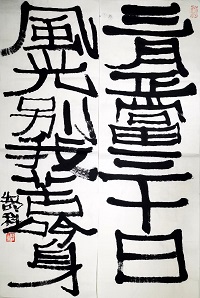 三月正當三十日
風光別我苦吟身